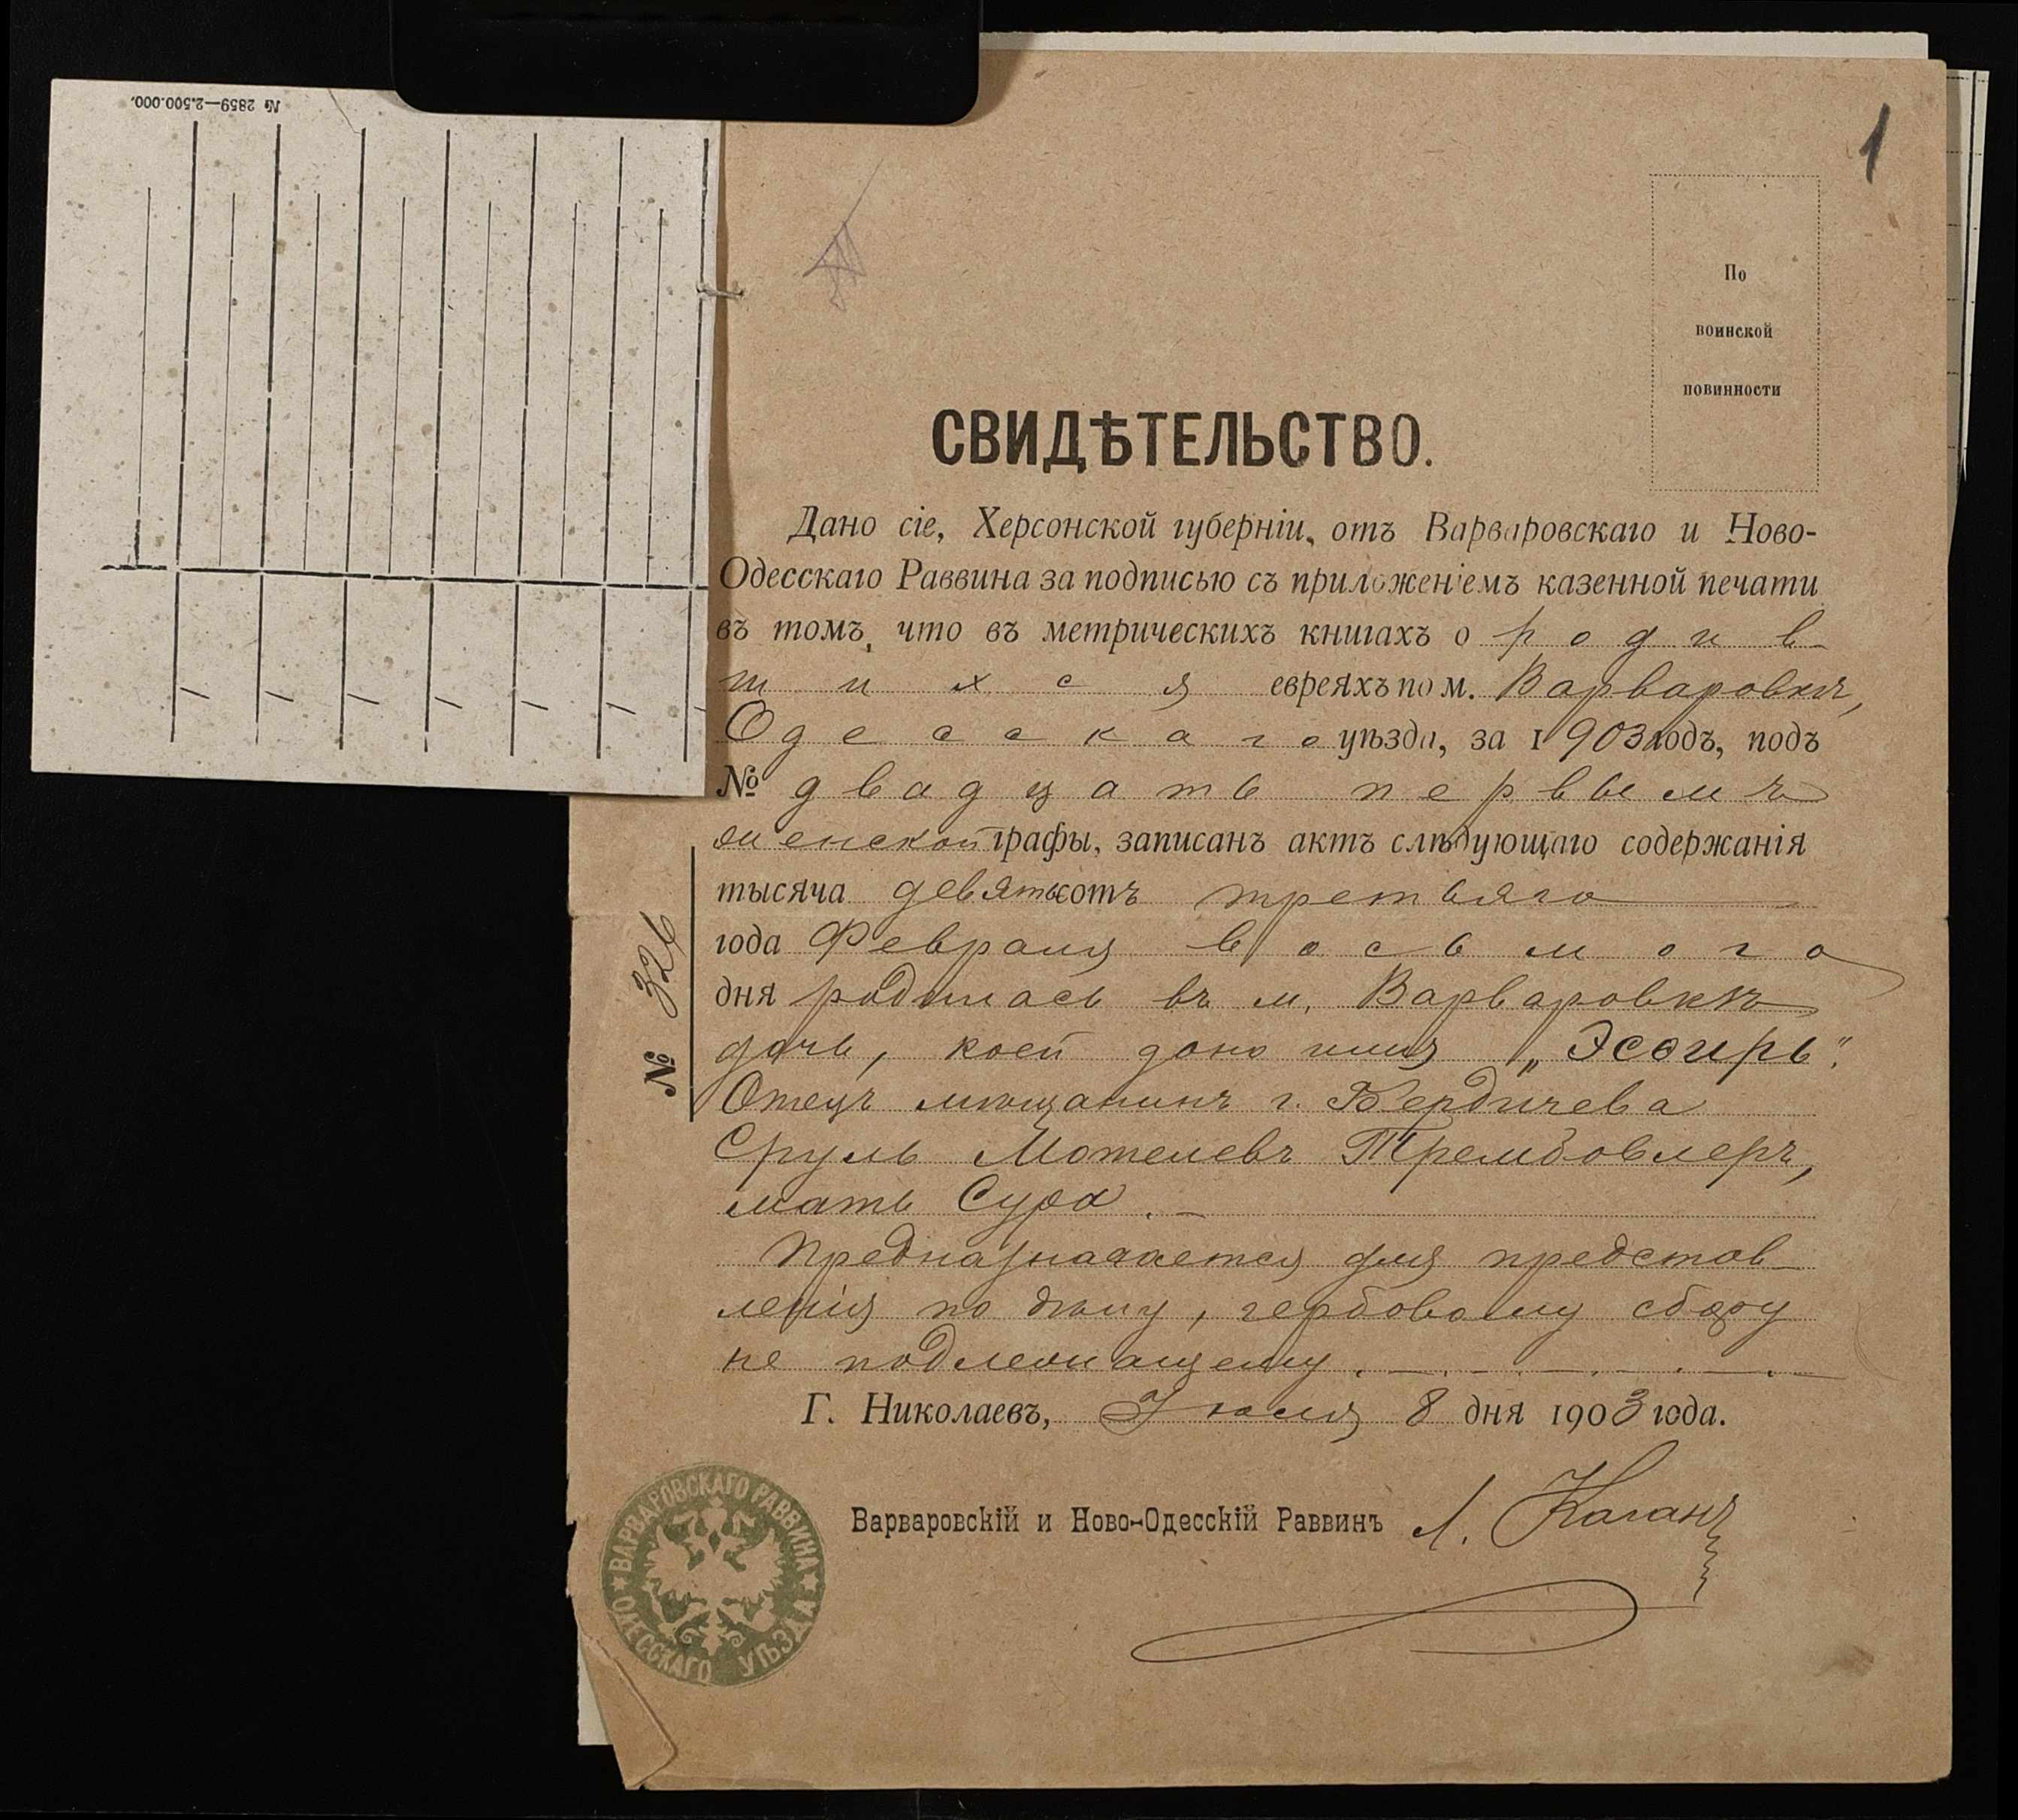 № 2859—2.500.000.
1
По
воинской
повинности
СВИДѢТЕЛЬСТВО.
Дано сіе, Херсонской губерніи, отъ Варваровскаго и Ново-
Одесскаго Раввина за подписью съ приложеніемъ казенной печати
въ томъ, что въ метрическихъ книгахъ о родив-
шихся евреяхъ по м. Варваровкѣ,
Одесскаго уѣзда, за 1903 годъ, подъ
№ двадцать первымъ
женской графы, записанъ актъ слѣдующаго содержанія
тысяча девятьсотъ третьяго
года Февраля восьмого
дня родилась въ м. Варваровкѣ
дочь, коей дано имя „Эсѳирь".
Отецъ мѣщанинъ г. Бердичева
Сруль Мотелевъ Трембовлеръ,
мать Сура.—
Предназначается для представ-
ленія по дѣлу, гербовому сбору
не подлежащему.
№ 326
Г. Николаевъ, Іюля 8 дня 1903 года.
Варваровскій и Ново-Одесскій Раввинъ Л. Каганъ
ВАРВАРОВСКАГО РАВВИНА ОДЕССКАГО УѢЗДА